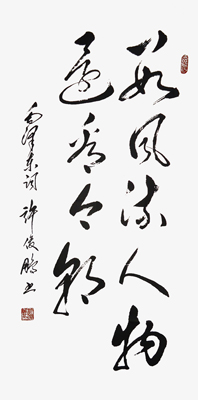 数风流人物
还看今朝
毛泽东词 许俊鹏书